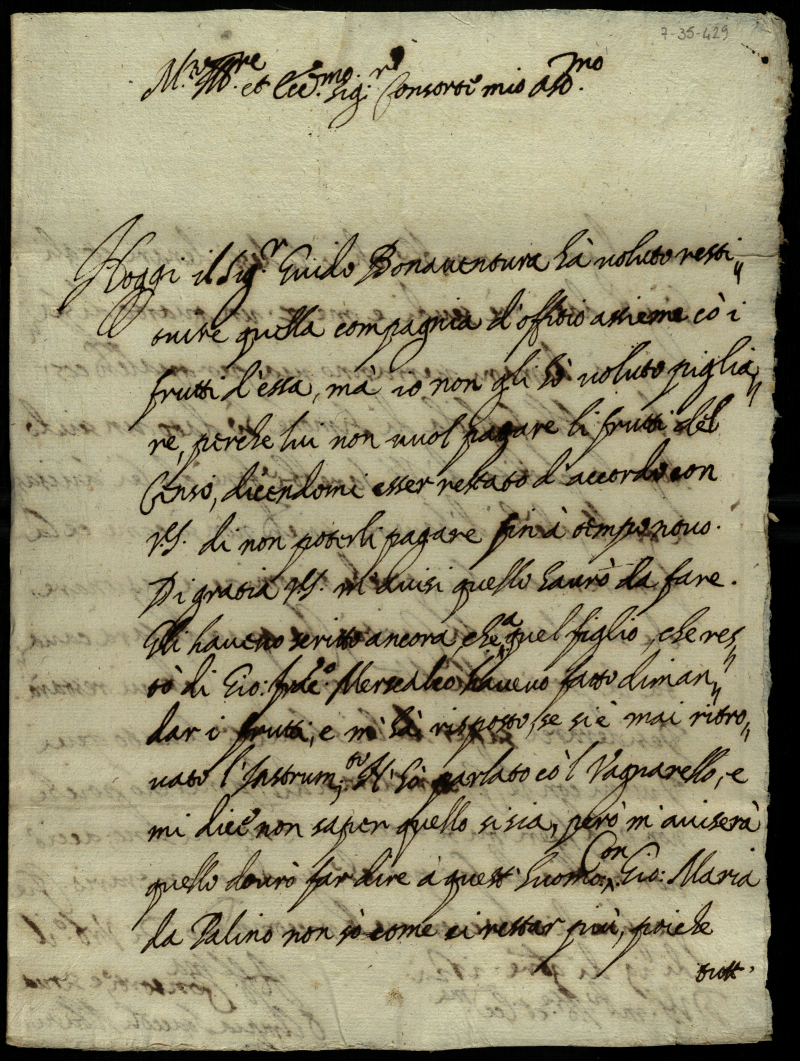 7-35-429
M.to Ill.re et Ecc.mo Sig.r Consorte mio oss.mo
Hoggi il Sig.r Guido Bonaventura hà voluto resti„
tuire quella compagnia d'offitio assieme cò i
frutti d'essa, mà io non gli hò voluto piglia„
re, perche lui non vuol pagare li frutti del
Censo, dicendomi esser restato d'accordo con
VS. di non poterli pagare fin à tempo novo.
Di gratia VS. m'avisi quello haurò da fare.
Gli havevo scritto ancora che a quel figlio, che res„
tò di Gio: havevo fatto diman„
dar i frutti, e m'hà risposto, se si è mai ritro„
vato l'Instrum.to N'hò parlato cò l Vagnarello, e
mi dice non saper quello si sia, però m'aviserà
quello dovrò far dire à quest' huomo. Con Gio: Maria
da Palino non sò come ci restar più, poiche
tutt'